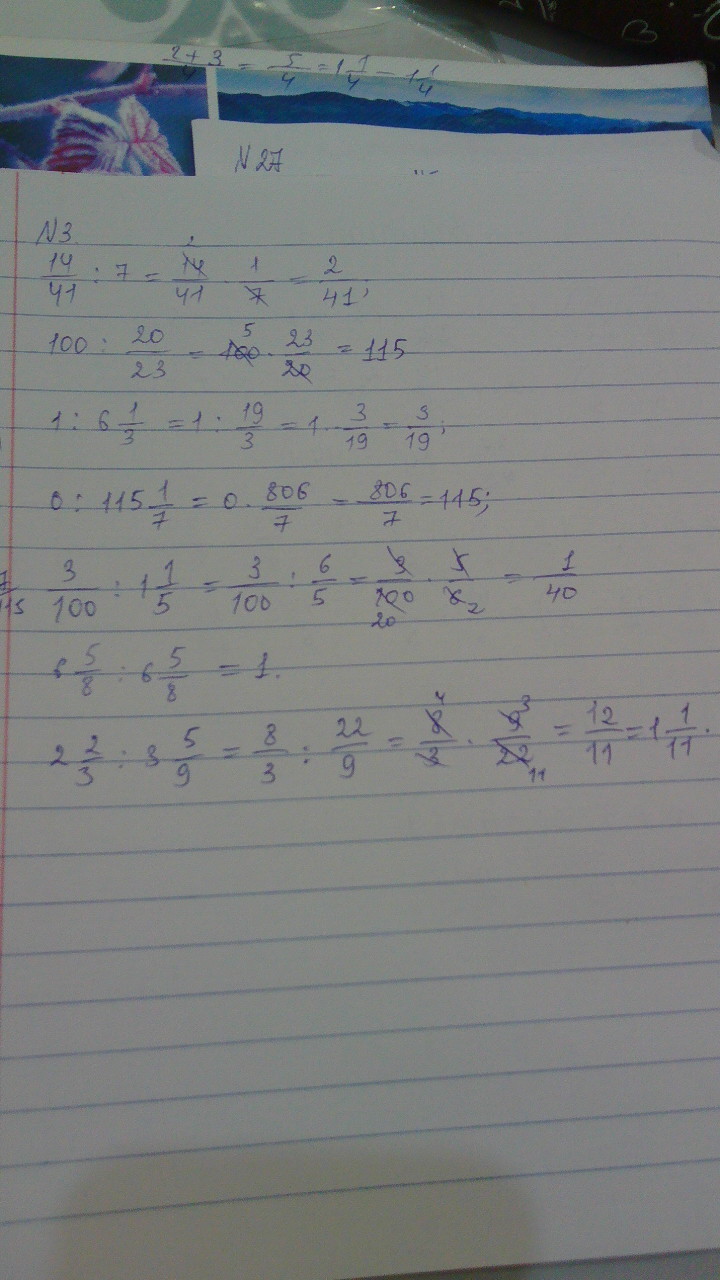 2+3/4 = 5/4 = 1 1/4 - 1 1/4
N 27
N3.
14/41 : 7 = 14/41 · 1/7 = 2/41;
100 : 20/23 = 100 · 23/20 = 115
1 : 6 1/3 = 1 : 19/3 = 1 · 3/19 = 3/19;
0 : 115 1/7 = 0 · 806/7 = 806/7 = 115;
3/100 : 1 1/5 = 3/100 : 6/5 = 3/100 · 5/6 = 1/40
20 2
6 5/8 : 6 5/8 = 1.
2 2/3 : 3 5/9 = 8/3 : 22/9 = 8/3 · 9/22 = 12/11 = 1 1/11.